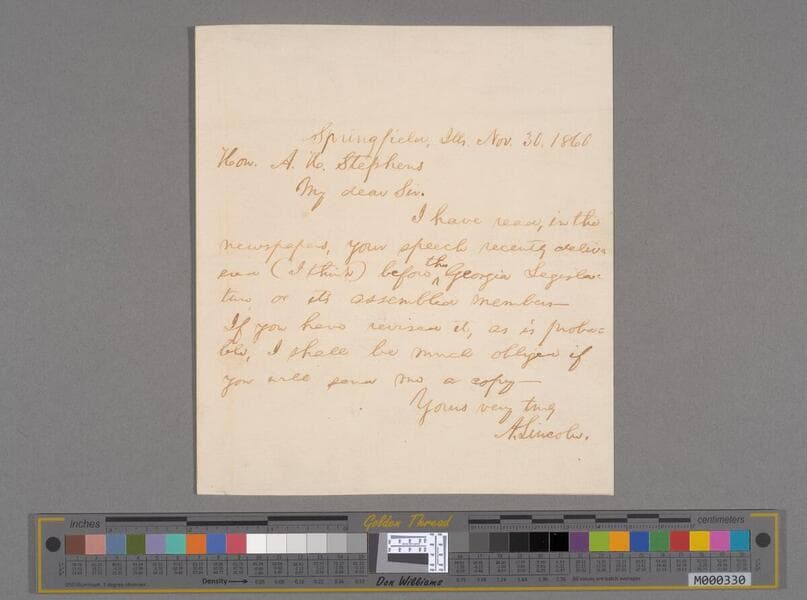 Springfield, Ills. Nov. 30. 1860
Hon. A. H. Stephens
My dear Sir.
I have read, in the
newspapers, your speech recently deliv-
ered (I think) before the Georgia Legisla-
ture or its assembled members—
If you have revised it, as is proba-
ble, I shall be much obliged if
you will send me a copy—
Yours very truly
A. Lincoln.
inches
Golden Thread
centimeters
Density
Don Williams
M000330